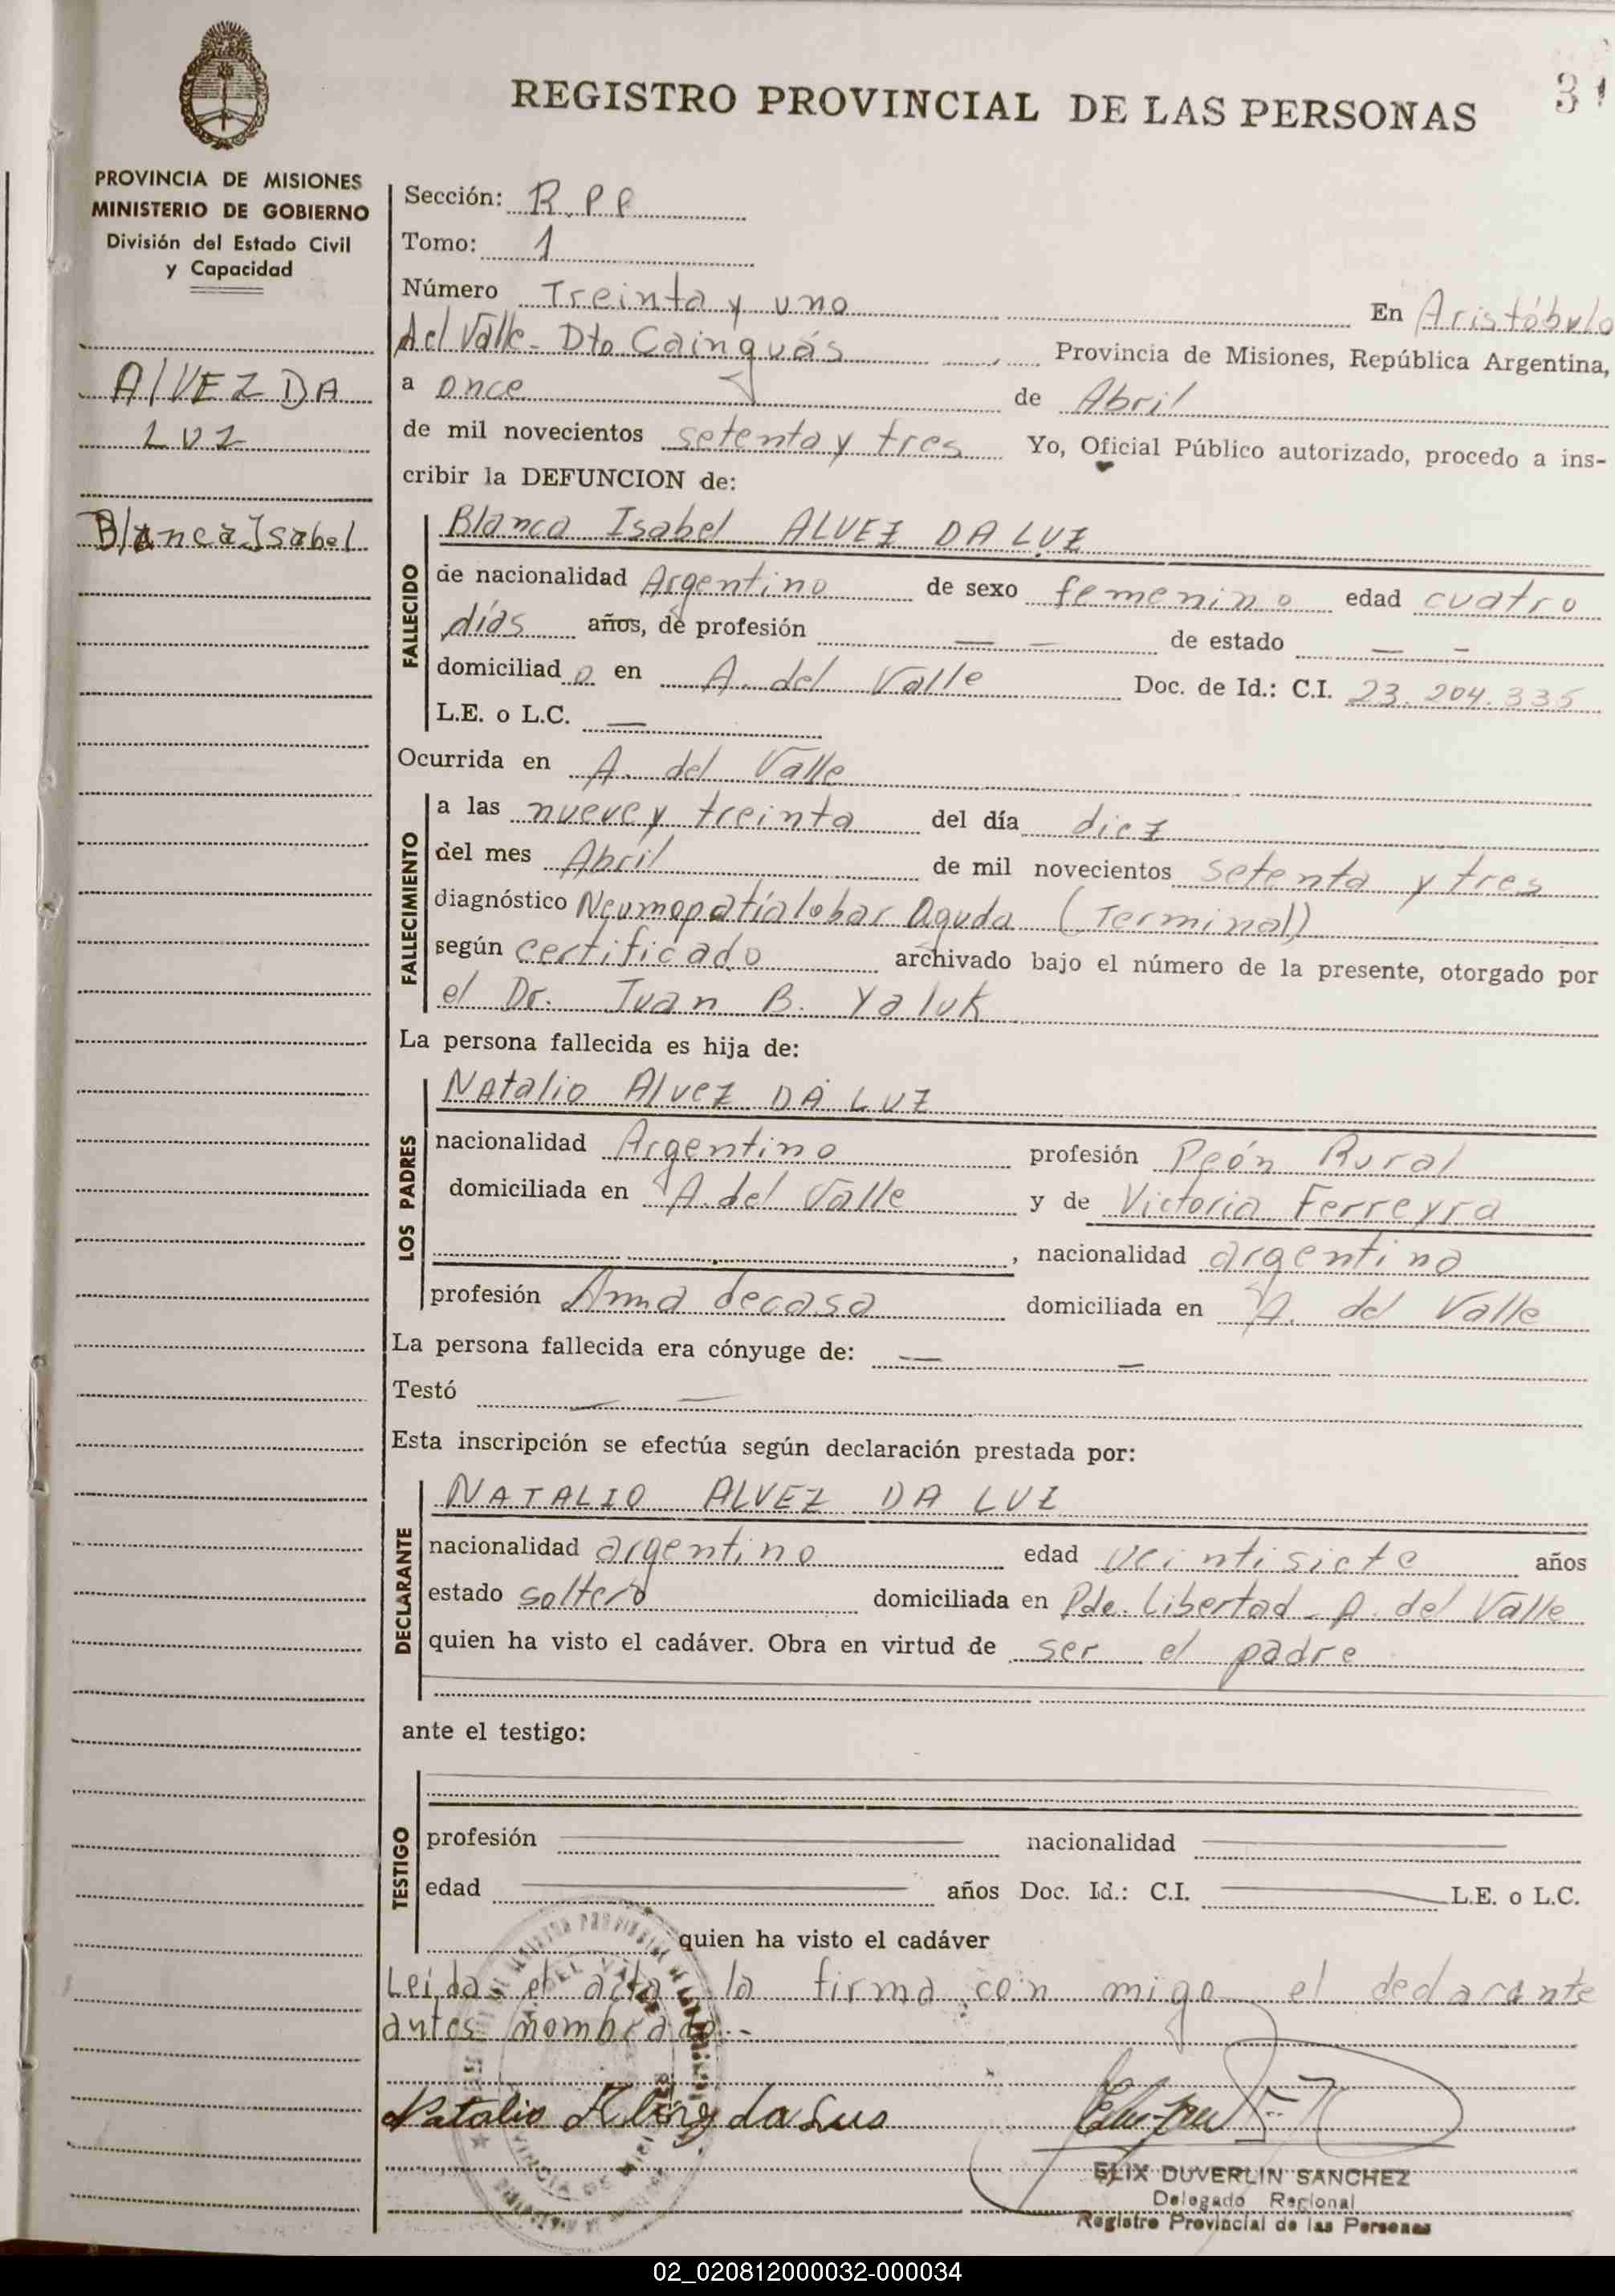 REGISTRO PROVINCIAL DE LAS PERSONAS
31
PROVINCIA DE MISIONES
MINISTERIO DE GOBIERNO
División del Estado Civil
y Capacidad
AlVEZ DA
LUZ
Blanca Isabel
Sección: R.P.P
Tomo: 1
Número Treinta y uno En Aristóbulo
del Valle - Dto Cainguás Provincia de Misiones, República Argentina,
a once de Abril
de mil novecientos setenta y tres Yo, Oficial Público autorizado, procedo a ins-
cribir la DEFUNCION de:
FALLECIDO
Blanca Isabel ALVEZ DA LUZ
de nacionalidad Argentino de sexo femenino edad cuatro
días años, de profesión — — de estado — —
domiciliad o en A. del Valle Doc. de Id.: C.I. 23.204.335
L.E. o L.C. —
Ocurrida en A. del Valle
FALLECIMIENTO
a las nueve y treinta del día diez
del mes Abril de mil novecientos setenta y tres
diagnóstico Neumopatía lobar Aguda (Terminal)
según certificado archivado bajo el número de la presente, otorgado por
el Dr. Juan B. Yaluk
La persona fallecida es hija de:
LOS PADRES
Natalio Alvez DA LUZ
nacionalidad Argentino profesión Peón Rural
domiciliada en A. del Valle y de Victoria Ferreyra
, nacionalidad argentina
profesión Ama de casa domiciliada en A. del Valle
La persona fallecida era cónyuge de: — —
Testó — —
Esta inscripción se efectúa según declaración prestada por:
DECLARANTE
NATALIO ALVEZ DA LUZ
nacionalidad argentino edad veintisiete años
estado soltero domiciliada en Pde. Libertad - A. del Valle
quien ha visto el cadáver. Obra en virtud de ser el padre
ante el testigo:
TESTIGO
profesión nacionalidad
edad años Doc. Id.: C.I. L.E. o L.C.
quien ha visto el cadáver
Leída el acta la firma con migo el declarante
antes nombrado.-
Natalio da Lus
ELIX DUVERLIN SANCHEZ
Delegado Regional
Registro Provincial de las Personas
02_020812000032-000034